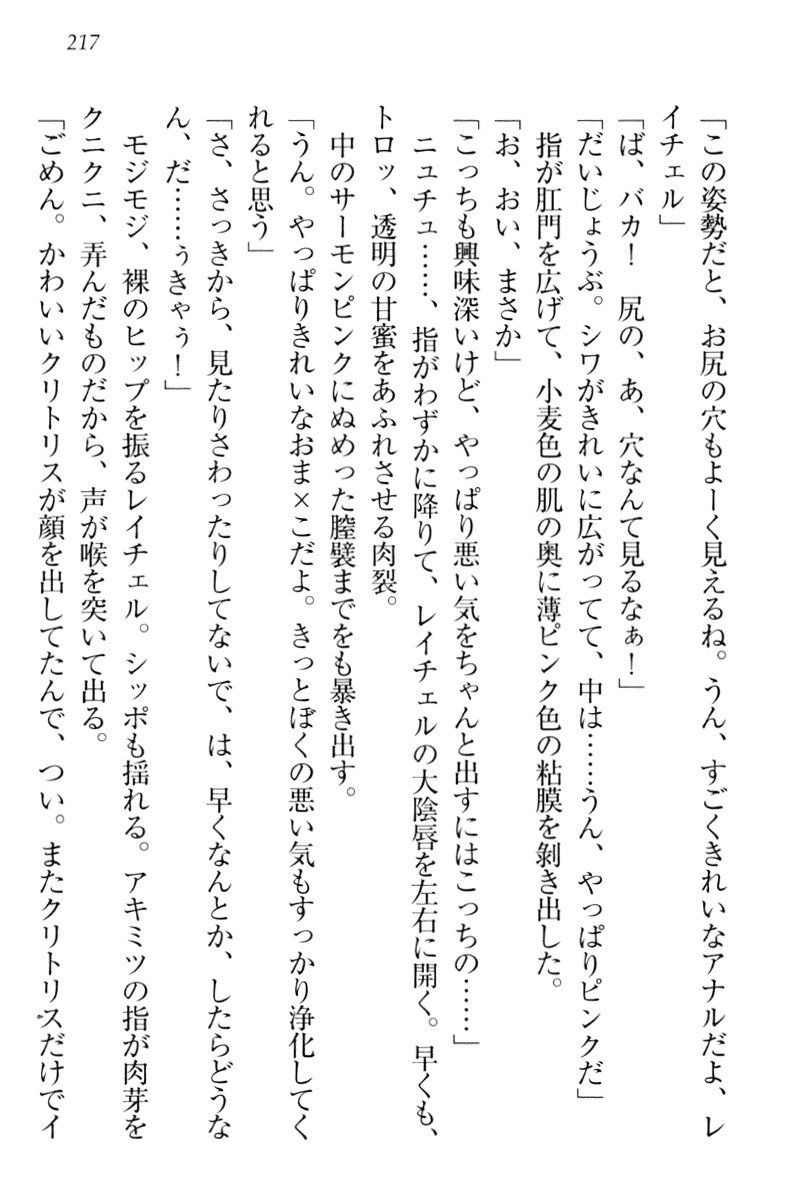 217
「この姿勢だと、お尻の穴もよーく見えるね。うん、すごくきれいなアナルだよ、レ
イチェル」
「ば、バカ！　尻の、あ、穴なんて見るなぁ！」
「だいじょうぶ。シワがきれいに広がってて、中は……うん、やっぱりピンクだ」
　指が肛門を広げて、小麦色の肌の奥に薄ピンク色の粘膜を剝き出した。
「お、おい、まさか」
「こっちも興味深いけど、やっぱり悪い気をちゃんと出すにはこっちの……」
　ニュチュ……、指がわずかに降りて、レイチェルの大陰唇を左右に開く。早くも、
トロッ、透明の甘蜜をあふれさせる肉裂。
　中のサーモンピンクにぬめった膣襞までをも暴き出す。
「うん。やっぱりきれいなおま×こだよ。きっとぼくの悪い気もすっかり浄化してく
れると思う」
「さ、さっきから、見たりさわったりしてないで、は、早くなんとか、したらどうな
ん、だ……ぅきゃぅ！」
　モジモジ、裸のヒップを振るレイチェル。シッポも揺れる。アキミツの指が肉芽を
クニクニ、弄んだものだから、声が喉を突いて出る。
「ごめん。かわいいクリトリスが顔を出してたんで、つい。またクリトリスだけでイ